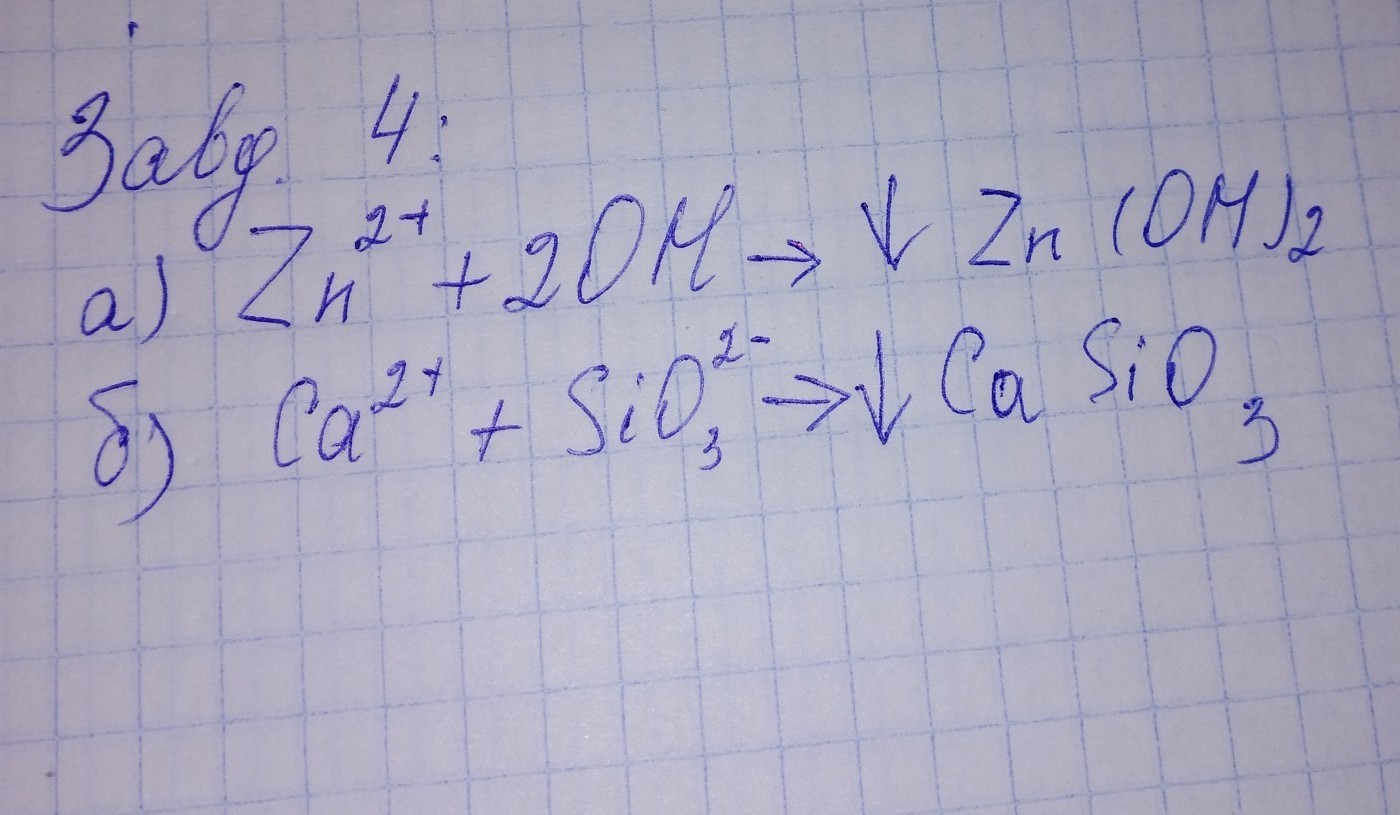 Завд. 4:
а) Zn²⁺ + 2OH → ↓ Zn (OH)₂
б) Ca²⁺ + SiO₃²⁻ → ↓ Ca SiO₃